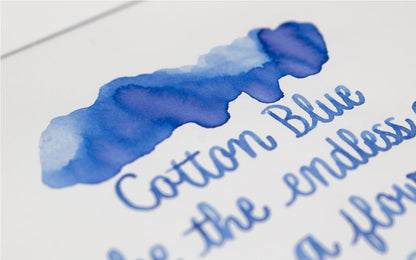 Cotton Blue
the endless
a